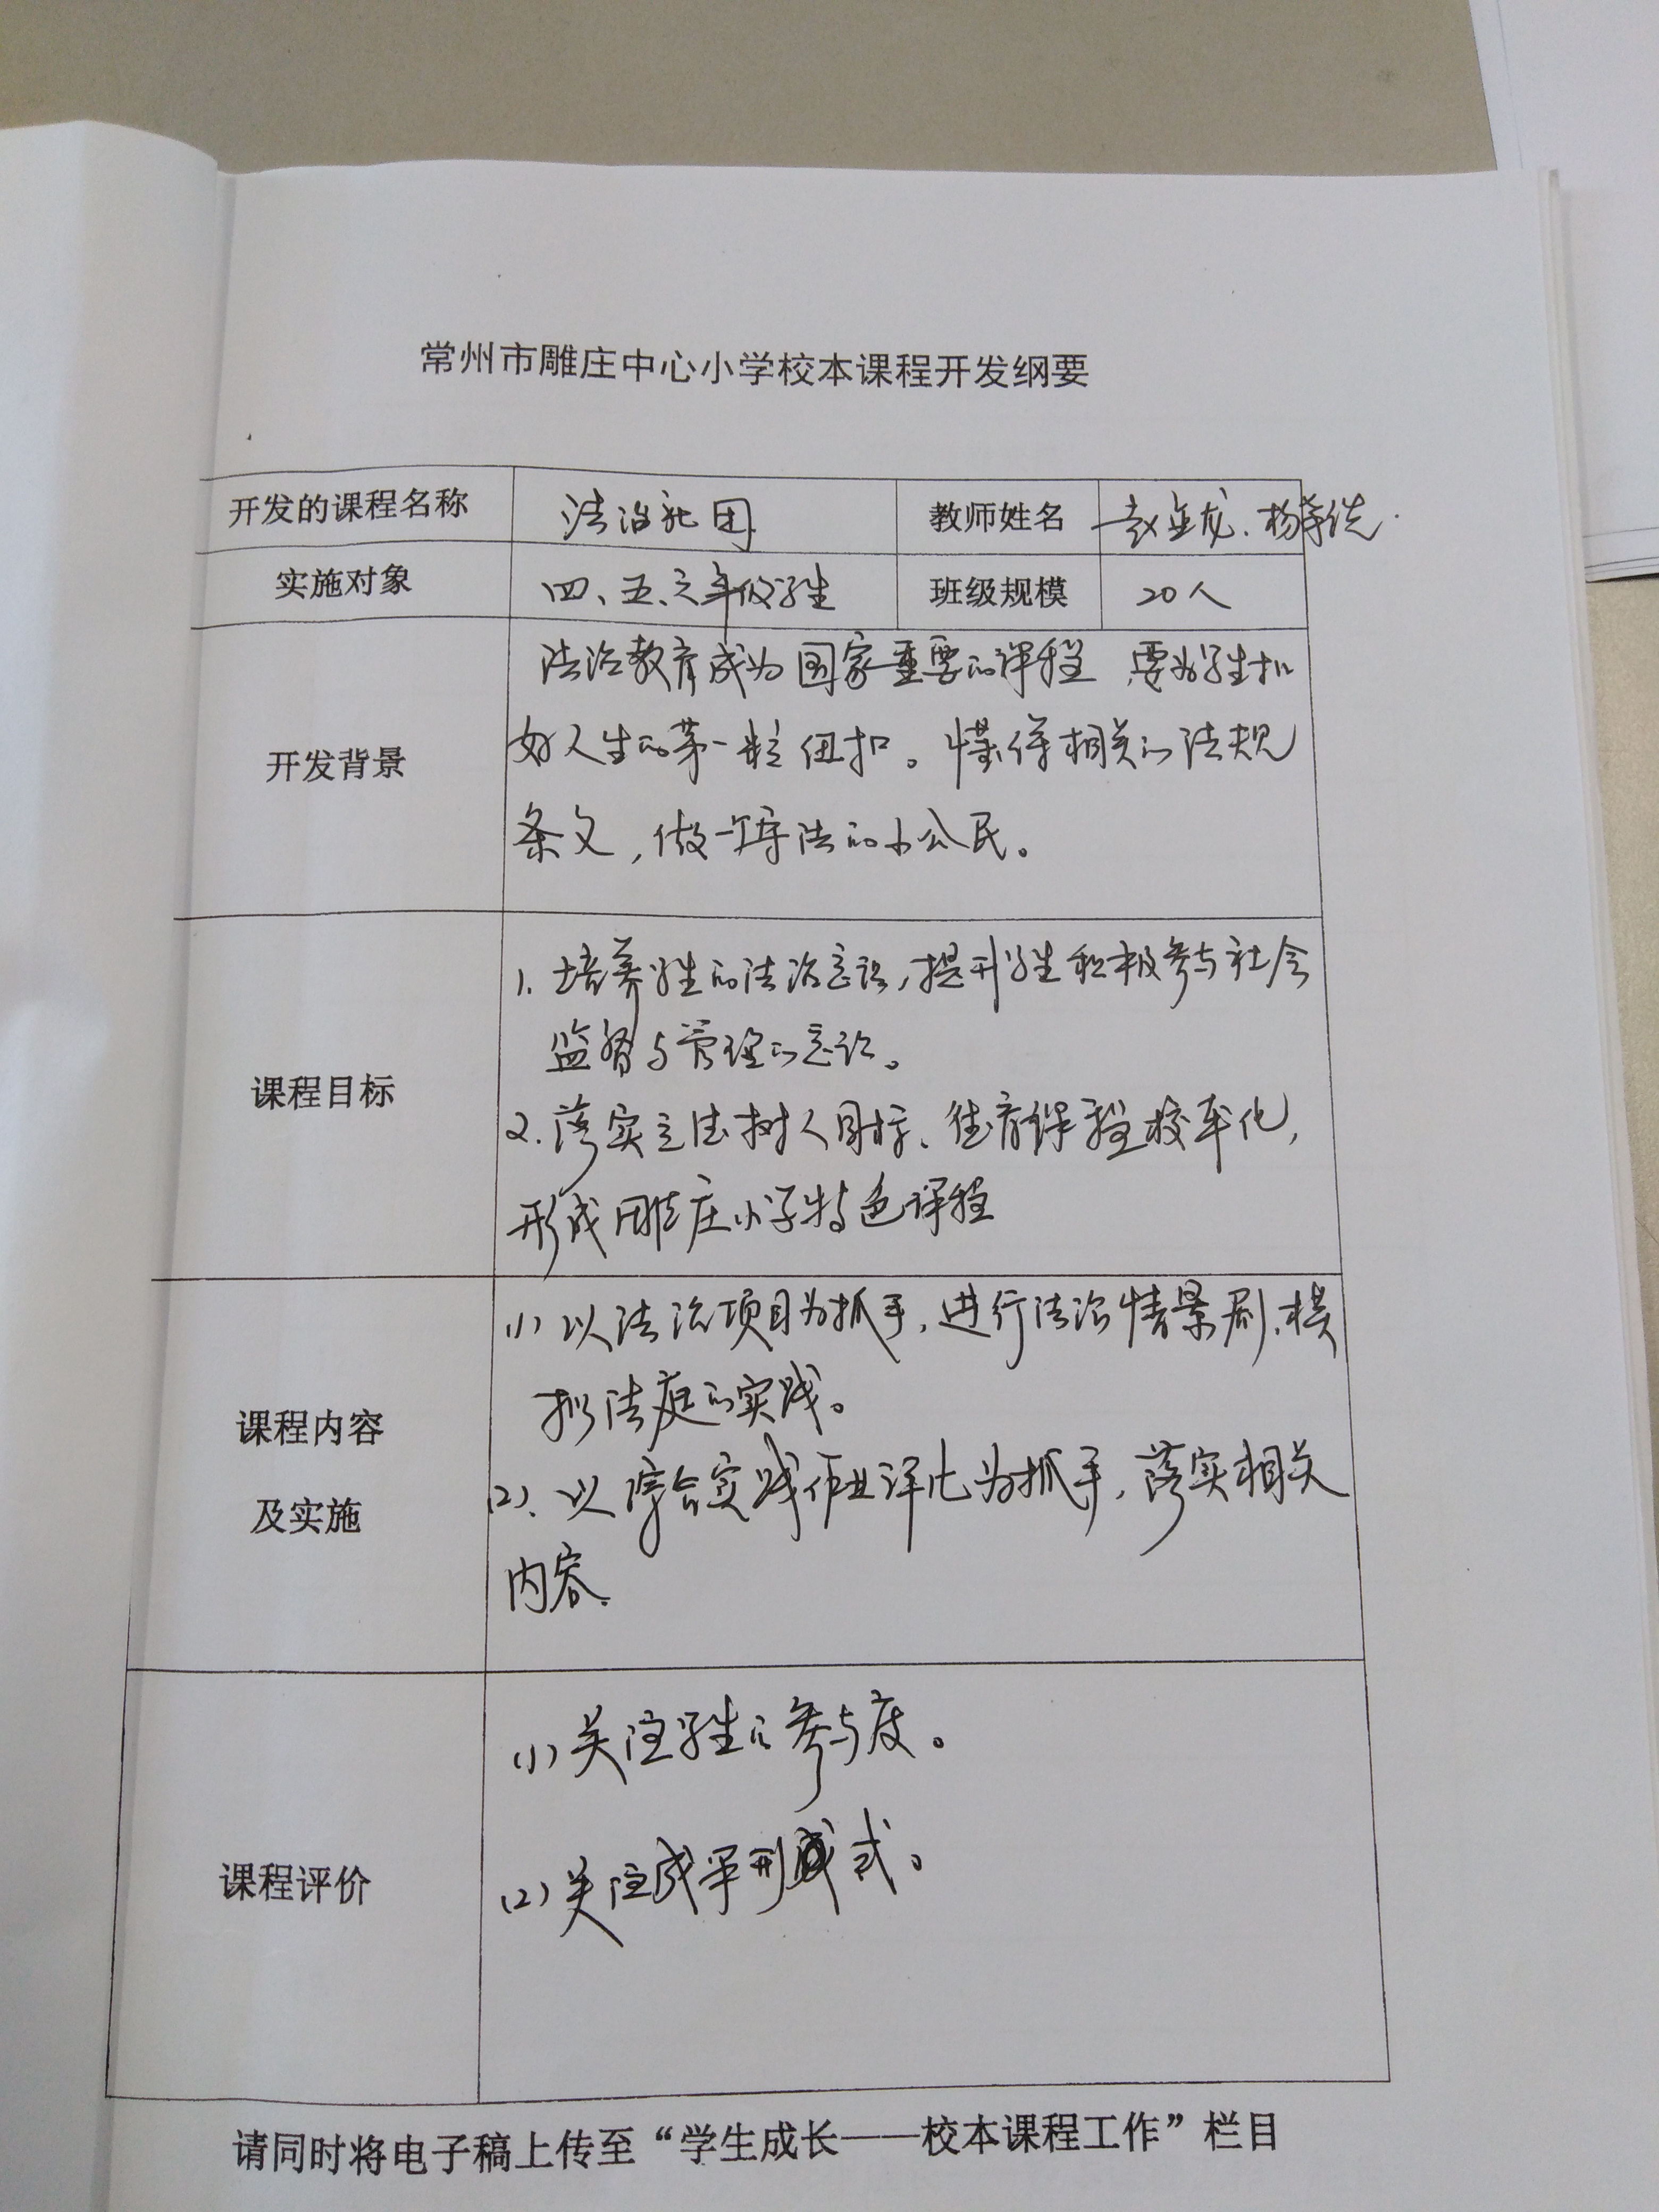 常州市雕庄中心小学校本课程开发纲要
开发的课程名称 法治社团 教师姓名 赵金龙、杨
实施对象 四、五、六年级学生 班级规模 20人
开发背景
法治教育成为国家重要的课程，要为学生扣
好人生的第一粒纽扣。懂得相关的法规
条文，做一个守法的小公民。
课程目标
1. 培养学生的法治意识，提升学生积极参与社会
监督与管理的意识。
2. 落实立法树人目标、德育课程校本化，
形成雕庄小学特色课程
课程内容
及实施
(1) 以法治项目为抓手，进行法治情景剧、模
拟法庭的实践。
(2)、以综合实践作业评比为抓手，落实相关
内容.
课程评价
(1) 关注学生的参与度。
(2) 关注成果形式。
请同时将电子稿上传至“学生成长——校本课程工作”栏目